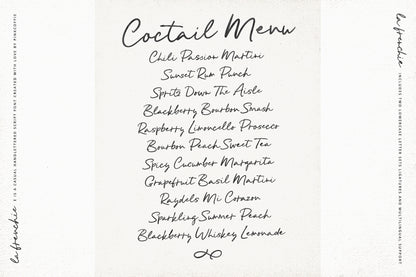 Coctail Menu
Chili Passion Martini
Sunset Rum Punch
Spritz Down The Aisle
Blackberry Bourbon Smash
Raspberry Limoncello Prosecco
Bourbon Peach Sweet Tea
Spicy Cucumber Margarita
Grapefruit Basil Martini
Raydels Mi Corazon
Sparkling Summer Peach
Blackberry Whiskey Lemonade
la frenchie
IS A CASUAL HANDLETTERED SCRIPT FONT CREATED WITH LOVE BY
la frenchie
INCLUDES TWO LOWERCASE LETTER SETS, LIGATURES AND MULTILINGUAL SUPPORT